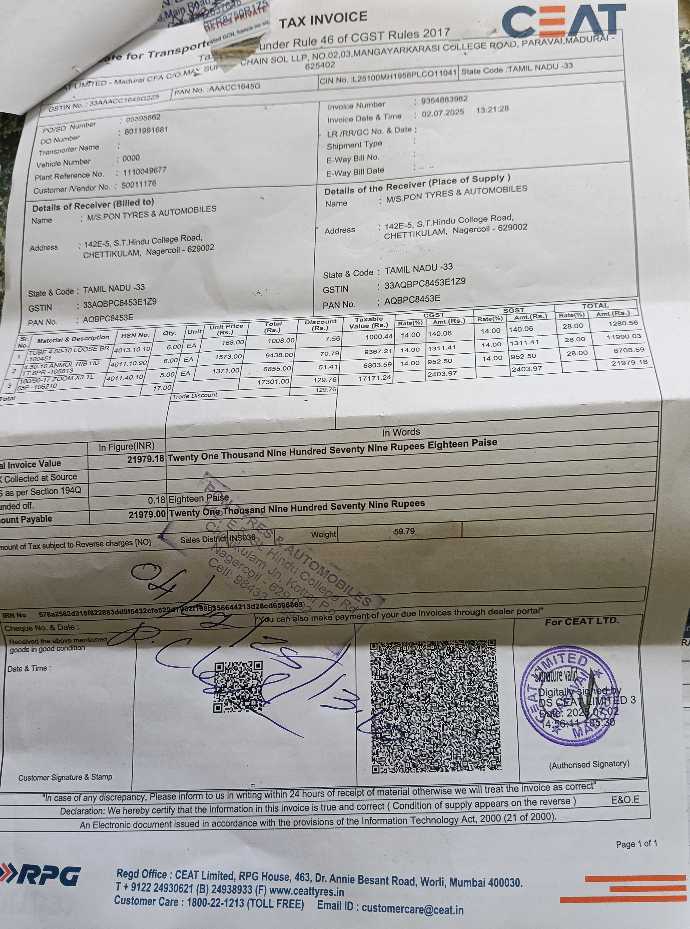 TAX INVOICE
CEAT
under Rule 46 of CGST Rules 2017
for Transporter
CHAIN SOL LLP, NO.02,03,MANGAYARKARASI COLLEGE ROAD, PARAVAI,MADURAI -
LIMITED - Madurai CFA C/O
625402
GSTIN No. : 33AAACC1645G
PAN No. : AAACC1645G
CIN No. : L25100MH1958PLC011041
State Code : TAMIL NADU -33
PO/SO Number
DO Number : 8011991681
Transporter Name :
Vehicle Number : 0000
Plant Reference No. : 1110049677
Customer /Vendor No. : 50011176
Invoice Number : 9364883962
Invoice Date & Time : 02.07.2025 13:21:28
LR /RR/GC No. & Date :
Shipment Type :
E-Way Bill No. :
E-Way Bill Date :
Details of Receiver (Billed to)
Name : M/S.PON TYRES & AUTOMOBILES
Address : 142E-5, S.T.Hindu College Road,
CHETTIKULAM, Nagercoil - 629002
State & Code : TAMIL NADU -33
GSTIN : 33AQBPC8453E1Z9
PAN No. : AQBPC8453E
Details of the Receiver (Place of Supply )
Name : M/S.PON TYRES & AUTOMOBILES
Address : 142E-5, S.T.Hindu College Road,
CHETTIKULAM, Nagercoil - 629002
State & Code : TAMIL NADU -33
GSTIN : 33AQBPC8453E1Z9
PAN No. : AQBPC8453E
Sr. No. Material & Description HSN No. Qty. Unit Unit Price (Rs.) Total (Rs.) Discount (Rs.) Taxable Value (Rs.) CGST Rate(%) Amt.(Rs.) SGST Rate(%) Amt.(Rs.) TOTAL Rate(%) Amt.(Rs.)
1 TUBE 4.50-10 LOOSE BR 4013.10.10 6.00 EA 168.00 1008.00 7.56 1000.44 14.00 140.06 14.00 140.06 28.00 1280.56
4011.70.90 6.00 EA 1573.00 9438.00 70.79 9367.21 14.00 1311.41 14.00 1311.41 28.00 11990.03
3 ZOOM X3 TL 4011.40.10 5.00 EA 1371.00 6855.00 51.41 6803.59 14.00 952.50 14.00 952.50 28.00 8708.59
Total 17.00 17301.00 129.76 17171.24 2403.97 2403.97 21979.18
Trade Discount 129.76
In Figure(INR) In Words
Invoice Value 21979.18 Twenty One Thousand Nine Hundred Seventy Nine Rupees Eighteen Paise
Collected at Source
as per Section 194Q
off. 0.18 Eighteen Paise
Payable 21979.00 Twenty One Thousand Nine Hundred Seventy Nine Rupees
Amount of Tax subject to Reverse charges [NO] Sales District INS036 Weight 59.79
TYRES & AUTOMOBILES
Hindu College Rd
Nagercoil
IRN No
Cheque No. & Date :
"You can also make payment of your due Invoices through dealer portal"
Received the above mentioned
goods in good condition
Date & Time :
For CEAT LTD.
CEAT LIMITED
Signature valid
Digitally signed by
DS CEAT LIMITED 3
Customer Signature & Stamp
(Authorised Signatory)
"In case of any discrepancy, Please inform to us in writing within 24 hours of receipt of material otherwise we will treat the invoice as correct"
Declaration: We hereby certify that the Information in this invoice is true and correct ( Condition of supply appears on the reverse )
E&O.E
An Electronic document issued in accordance with the provisions of the Information Technology Act, 2000 (21 of 2000).
Page 1 of 1
RPG
Regd Office : CEAT Limited, RPG House, 463, Dr. Annie Besant Road, Worli, Mumbai 400030.
T + 9122 24930621 (B) 24938933 (F) www.ceattyres.in
Customer Care : 1800-22-1213 (TOLL FREE) Email ID : customercare@ceat.in